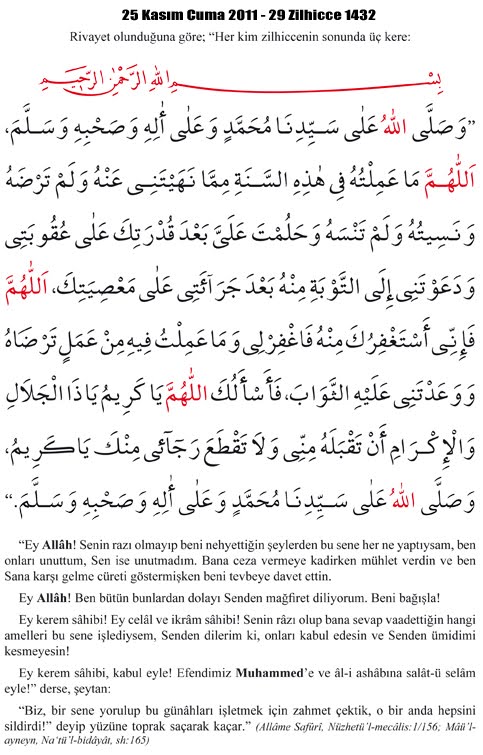 25 Kasım Cuma 2011 - 29 Zilhicce 1432
Rivayet olunduğuna göre; “Her kim zilhiccenin sonunda üç kere:
بِسْمِ اللهِ الرَّحْمٰنِ الرَّحِيمِ
”وَصَلَّى اللهُ عَلٰى سَيِّدِنَا مُحَمَّدٍ وَعَلٰى أٰلِهِ وَصَحْبِهِ وَسَلَّمَ،
اَللّٰهُمَّ مَا عَمِلْتُهُ فِي هٰذِهِ السَّنَةِ مِمَّا نَهَيْتَنِى عَنْهُ وَلَمْ تَرْضَهُ
وَنَسِيتُهُ وَلَمْ تَنْسَهُ وَحَلُمْتَ عَلَىَّ بَعْدَ قُدْرَتِكَ عَلٰى عُقُوبَتِى
وَدَعَوْتَنِى إِلَى التَّوْبَةِ مِنْهُ بَعْدَ جَرَآئَتِى عَلٰى مَعْصِيَتِكَ، اَللّٰهُمَّ
فَإِنِّى أَسْتَغْفِرُكَ مِنْهُ فَاغْفِرْلِى وَمَا عَمِلْتُ فِيهِ مِنْ عَمَلٍ تَرْضَاهُ
وَوَعَدْتَنِى عَلَيْهِ الثَّوَابَ، فَأَسْأَلُكَ اللّٰهُمَّ يَا كَرِيمُ يَاذَا الْجَلَالِ
وَالْإِكْرَامِ أَنْ تَقْبَلَهُ مِنِّى وَلَا تَقْطَعَ رَجَآئِى مِنْكَ يَاكَرِيمُ،
وَصَلَّى اللهُ عَلٰى سَيِّدِنَا مُحَمَّدٍ وَعَلٰى أٰلِهِ وَصَحْبِهِ وَسَلَّمَ.“
“Ey Allâh! Senin razı olmayıp beni nehyettiğin şeylerden bu sene her ne yaptıysam, ben
onları unuttum, Sen ise unutmadım. Bana ceza vermeye kadirken mühlet verdin ve ben
Sana karşı gelme cüreti göstermişken beni tevbeye davet ettin.
Ey Allâh! Ben bütün bunlardan dolayı Senden mağfiret diliyorum. Beni bağışla!
Ey kerem sâhibi! Ey celâl ve ikrâm sâhibi! Senin râzı olup bana sevap vaadettiğin hangi
amelleri bu sene işlediysem, Senden dilerim ki, onları kabul edesin ve Senden ümidimi
kesmeyesin!
Ey kerem sâhibi, kabul eyle! Efendimiz Muhammed’e ve âl-i ashâbına salât-ü selâm
eyle!” derse, şeytan:
“Biz, bir sene yorulup bu günahları işletmek için zahmet çektik, o bir anda hepsini
sildirdi!” deyip yüzüne toprak saçarak kaçar.” (Allâme Safûrî, Nüzhetü’l-mecâlis:1/156; Mâü’l-
ayneyn, Na‘tü’l-bidâyât, sh:165)